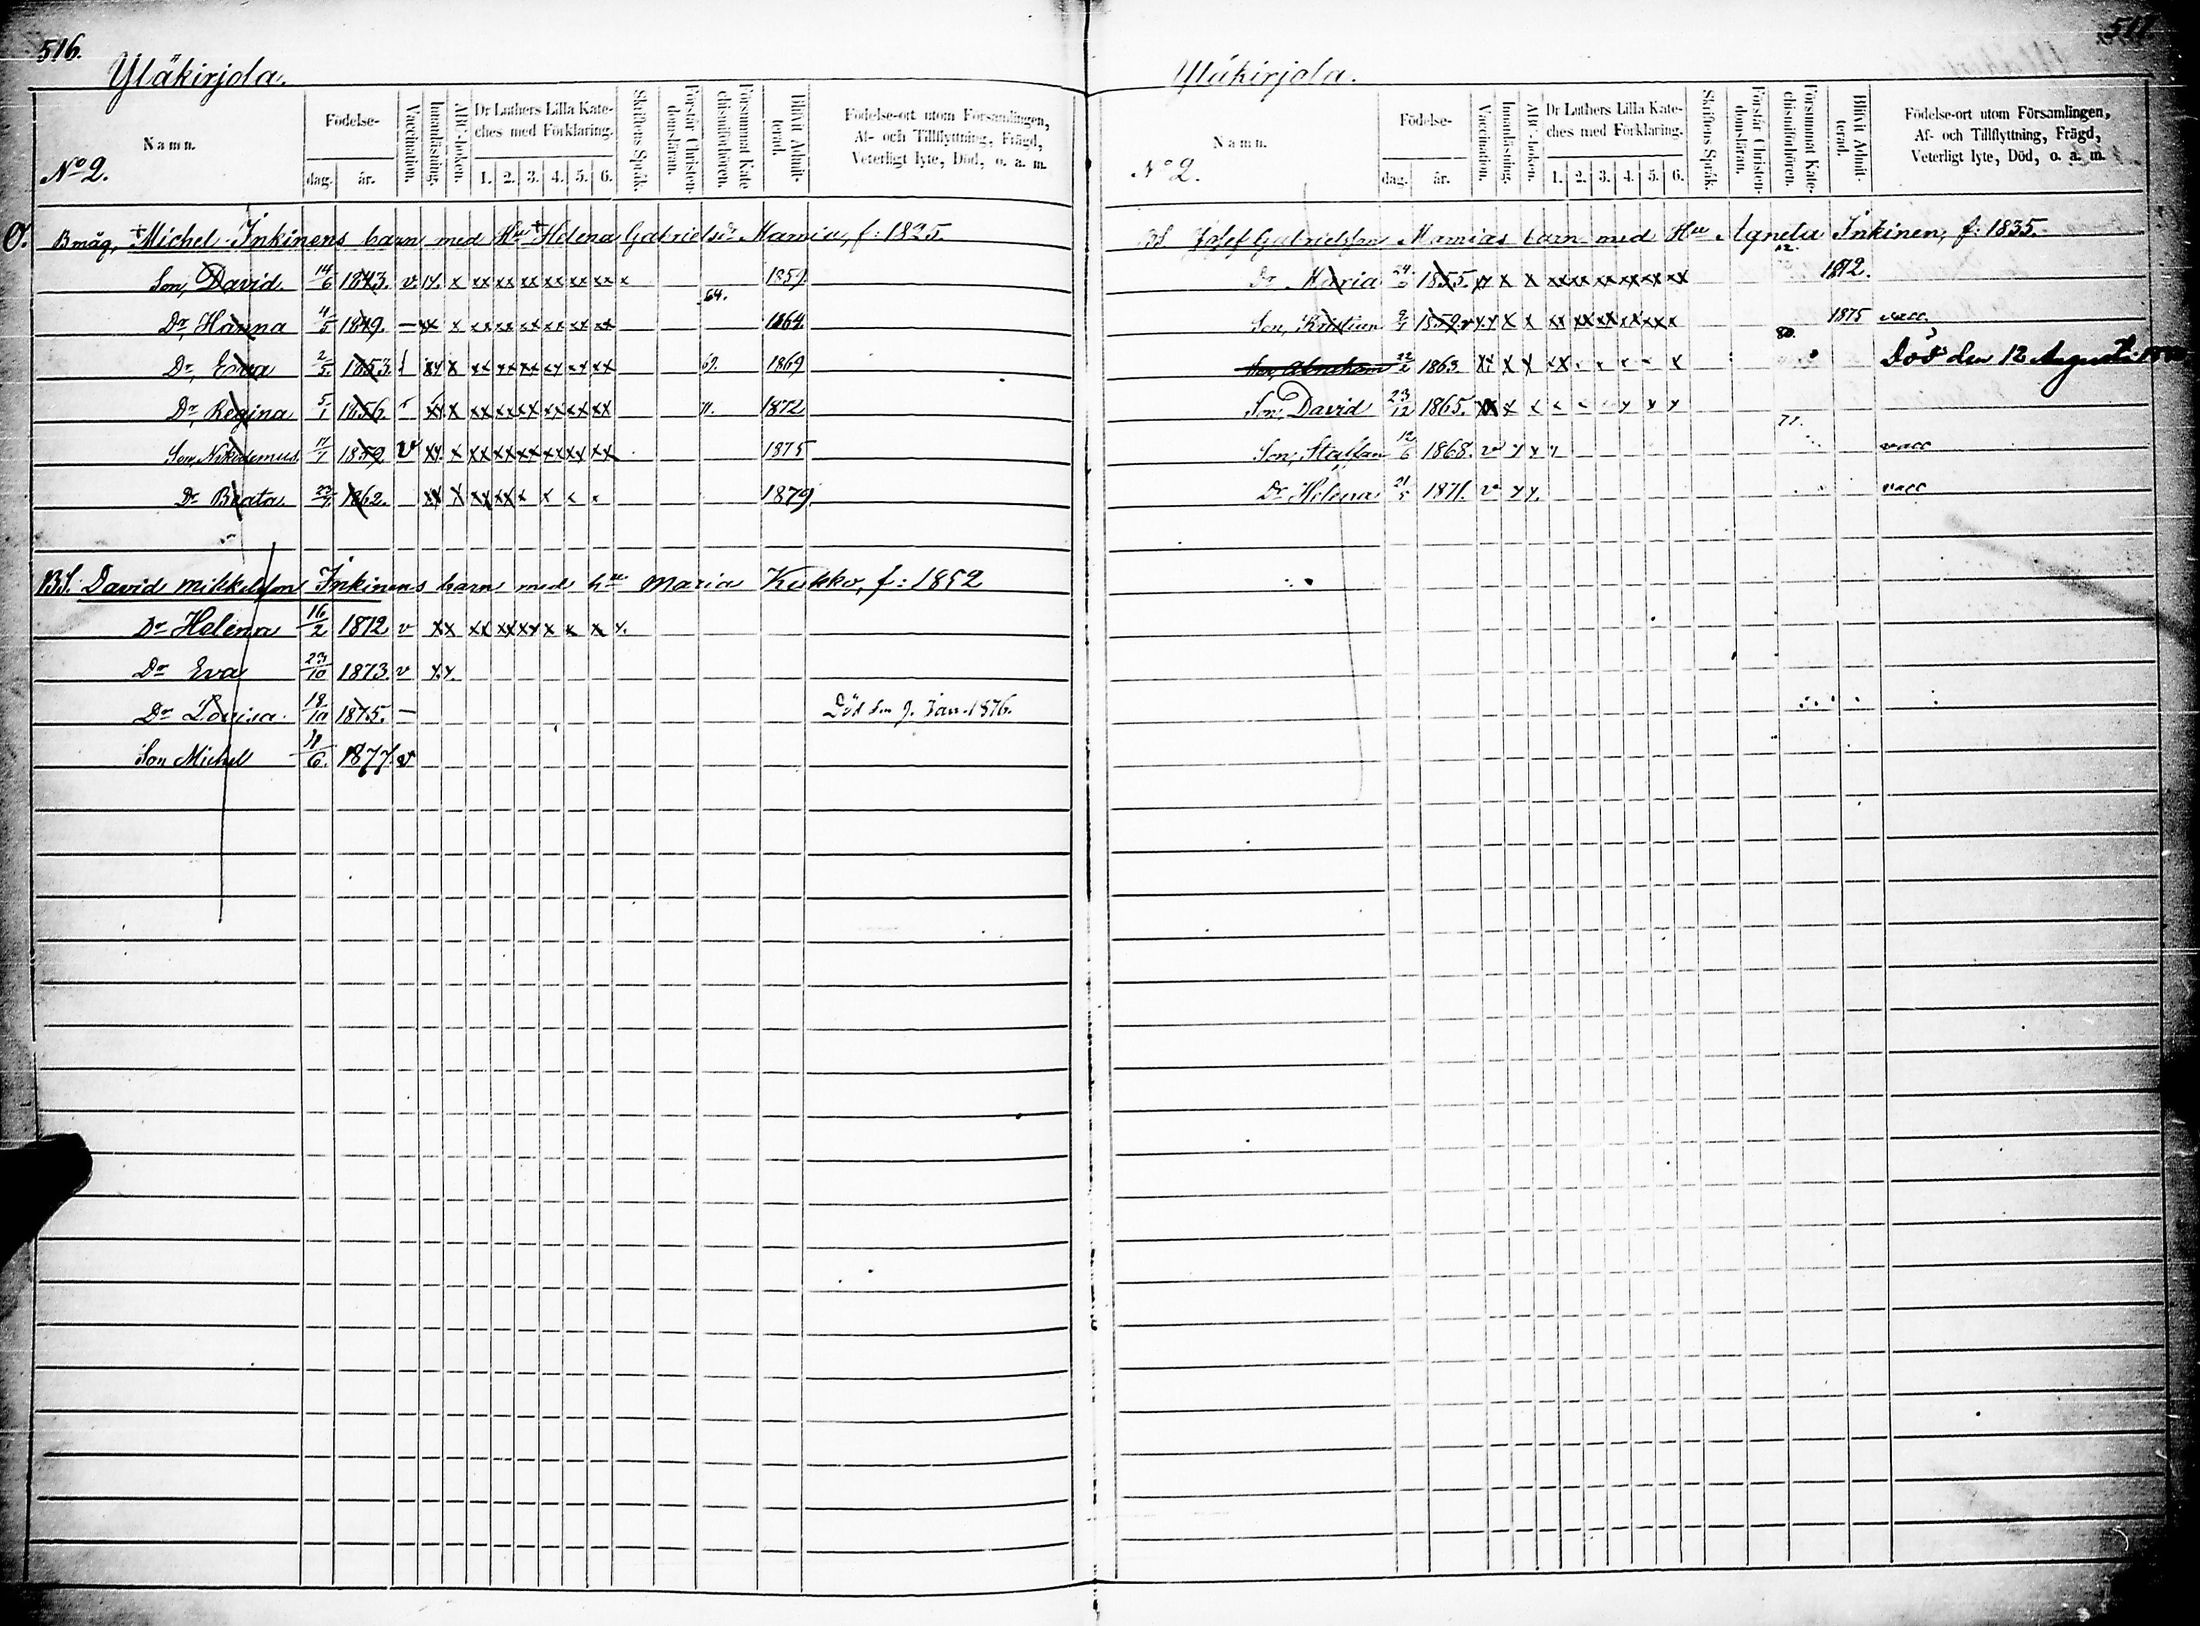 516.
Yläkirjola.
Namn.
Födelse-
dag. år.
Vaccination.
Innanläsning.
ABC-boken.
Dr Luthers Lilla Kate-
ches med Förklaring.
1. 2. 3. 4. 5. 6.
Skriftens Språk.
Förstår Christen-
domsläran.
Försummat Kate-
chismiförhören.
Blifvit Admit-
terad.
Födelse-ort utom Församlingen,
Af- och Tillflyttning, Frägd,
Veterligt lyte, Död, o. a. m.
No 2.
O. Bmåg, Michel Inkinens barn med Hu Helena Gabrielsdr Mamia, f: 1825.
Son, David 14/6 1843. v. x xx xx xx xx xx xx x 1859
Dr, Hanna 4/5 1849. — xx x xx xx xx xx xx xx 64. 1864
Dr, Eva 2/5 1853 xx x xx xx xx xx xx xx 69. 1869
Dr, Regina 5/1 1856 xx x xx xx xx xx xx xx 71. 1872
Son, Nikodemus 17/1 1859 v xx x xx xx xx xx xx xx 1875
Dr Beata 23/4 1862. xx x xx xx x x x x 1879
BS. David Mikkelson Inkinens barn med hu Maria Kukko, f: 1852
Dr Helena 16/2 1872 v xx xx xx xx x x x x.
Dr Eva 23/10 1873. v xx.
Dr Lovisa 18/10 1875. — Död den 9. Jan. 1876.
Son Michel 11/6 1877. v
517.
Yläkirjola.
Namn.
Födelse-
dag. år.
Vaccination.
Innanläsning.
ABC-boken.
Dr Luthers Lilla Kate-
ches med Förklaring.
1. 2. 3. 4. 5. 6.
Skriftens Språk.
Förstår Christen-
domsläran.
Försummat Kate-
chismiförhören.
Blifvit Admit-
terad.
Födelse-ort utom Församlingen,
Af- och Tillflyttning, Frägd,
Veterligt lyte, Död, o. a. m.
No 2.
BS Josef Gabrielsson Mamias barn med Hu Agneta Inkinen, f: 1835.
Dr Maria 1855. xx x x xx xx xx xx xx xx 1872.
Son, Kristian 1859. v xx x x xx xx xx xx xx x 1875 vacc.
Son, Abraham 22/2 1863. xx x x xx x x x x x 80. Död den 12 Augusti
Son, David 23/12 1865. xx x x x x x x x x
Son, Staffan 12/6 1868. v x x x 77. vacc
Dr Helena 21/5 1871. v x x. vacc